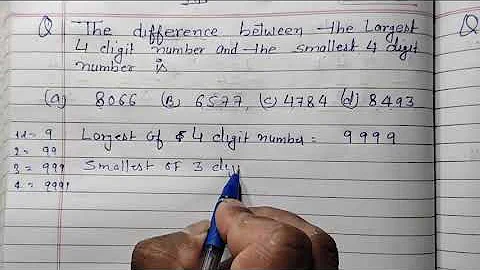 Q The difference between the Largest
4 digit number and the smallest 4 digit
number is
(a) 8066 (B) 6577 (C) 4784 (d) 8493
1d = 9 Largest of 4 digit number = 9999
2 = 99
3 = 999 Smallest of 3 di
4 = 9991
Q